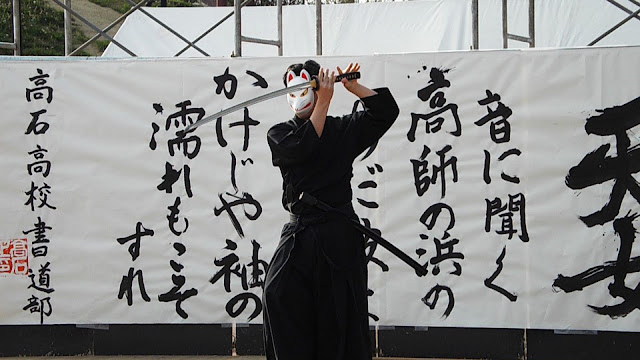 天女
音に聞く
高師の浜の
かけじや袖の
濡れもこそ
すれ
高石高校書道部